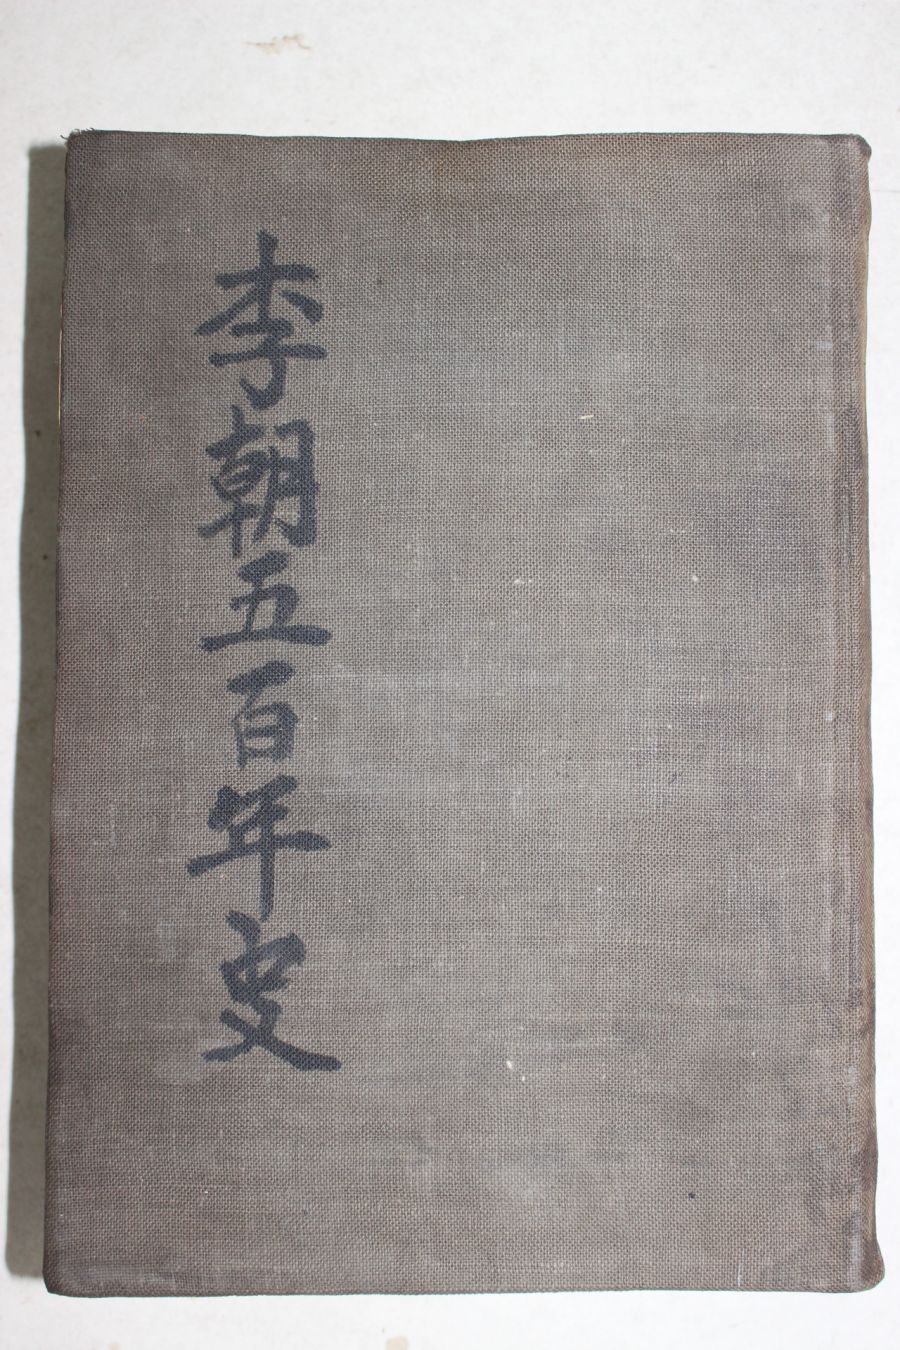 李朝五百年史